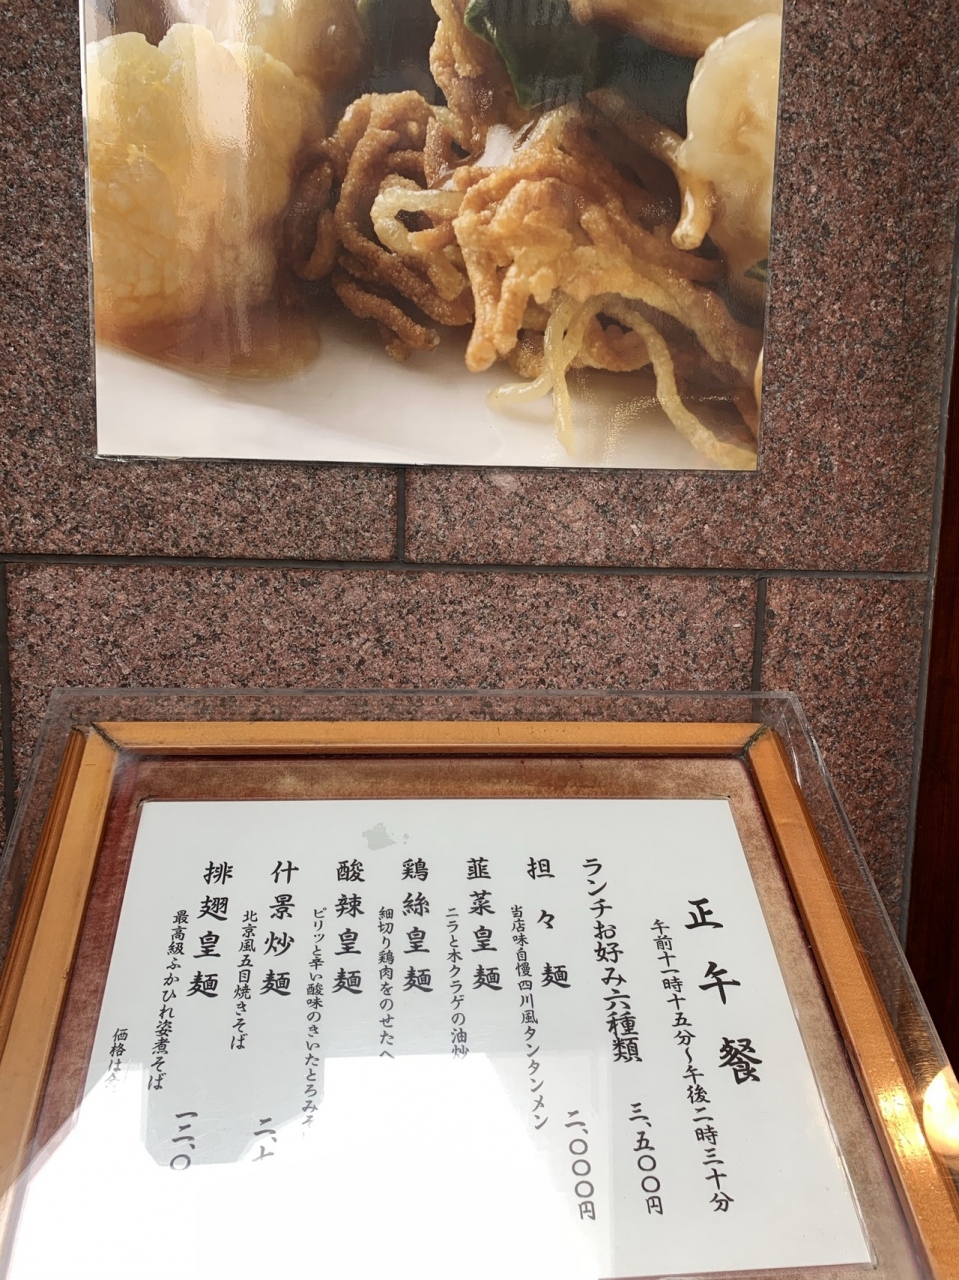 正午餐
午前十一時十五分〜午後二時三十分
ランチお好み六種類 三、五〇〇円
担々麺 二、〇〇〇円
当店味自慢四川風タンタンメン
韮菜皇麺
ニラと木クラゲの油炒
鶏絲皇麺
細切り鶏肉をのせた
酸辣皇麺
ピリッと辛い酸味のきいたとろみ
什景炒麺 二、七
北京風五目焼きそば
排翅皇麺 一二、〇
最高級ふかひれ姿煮そば
価格は